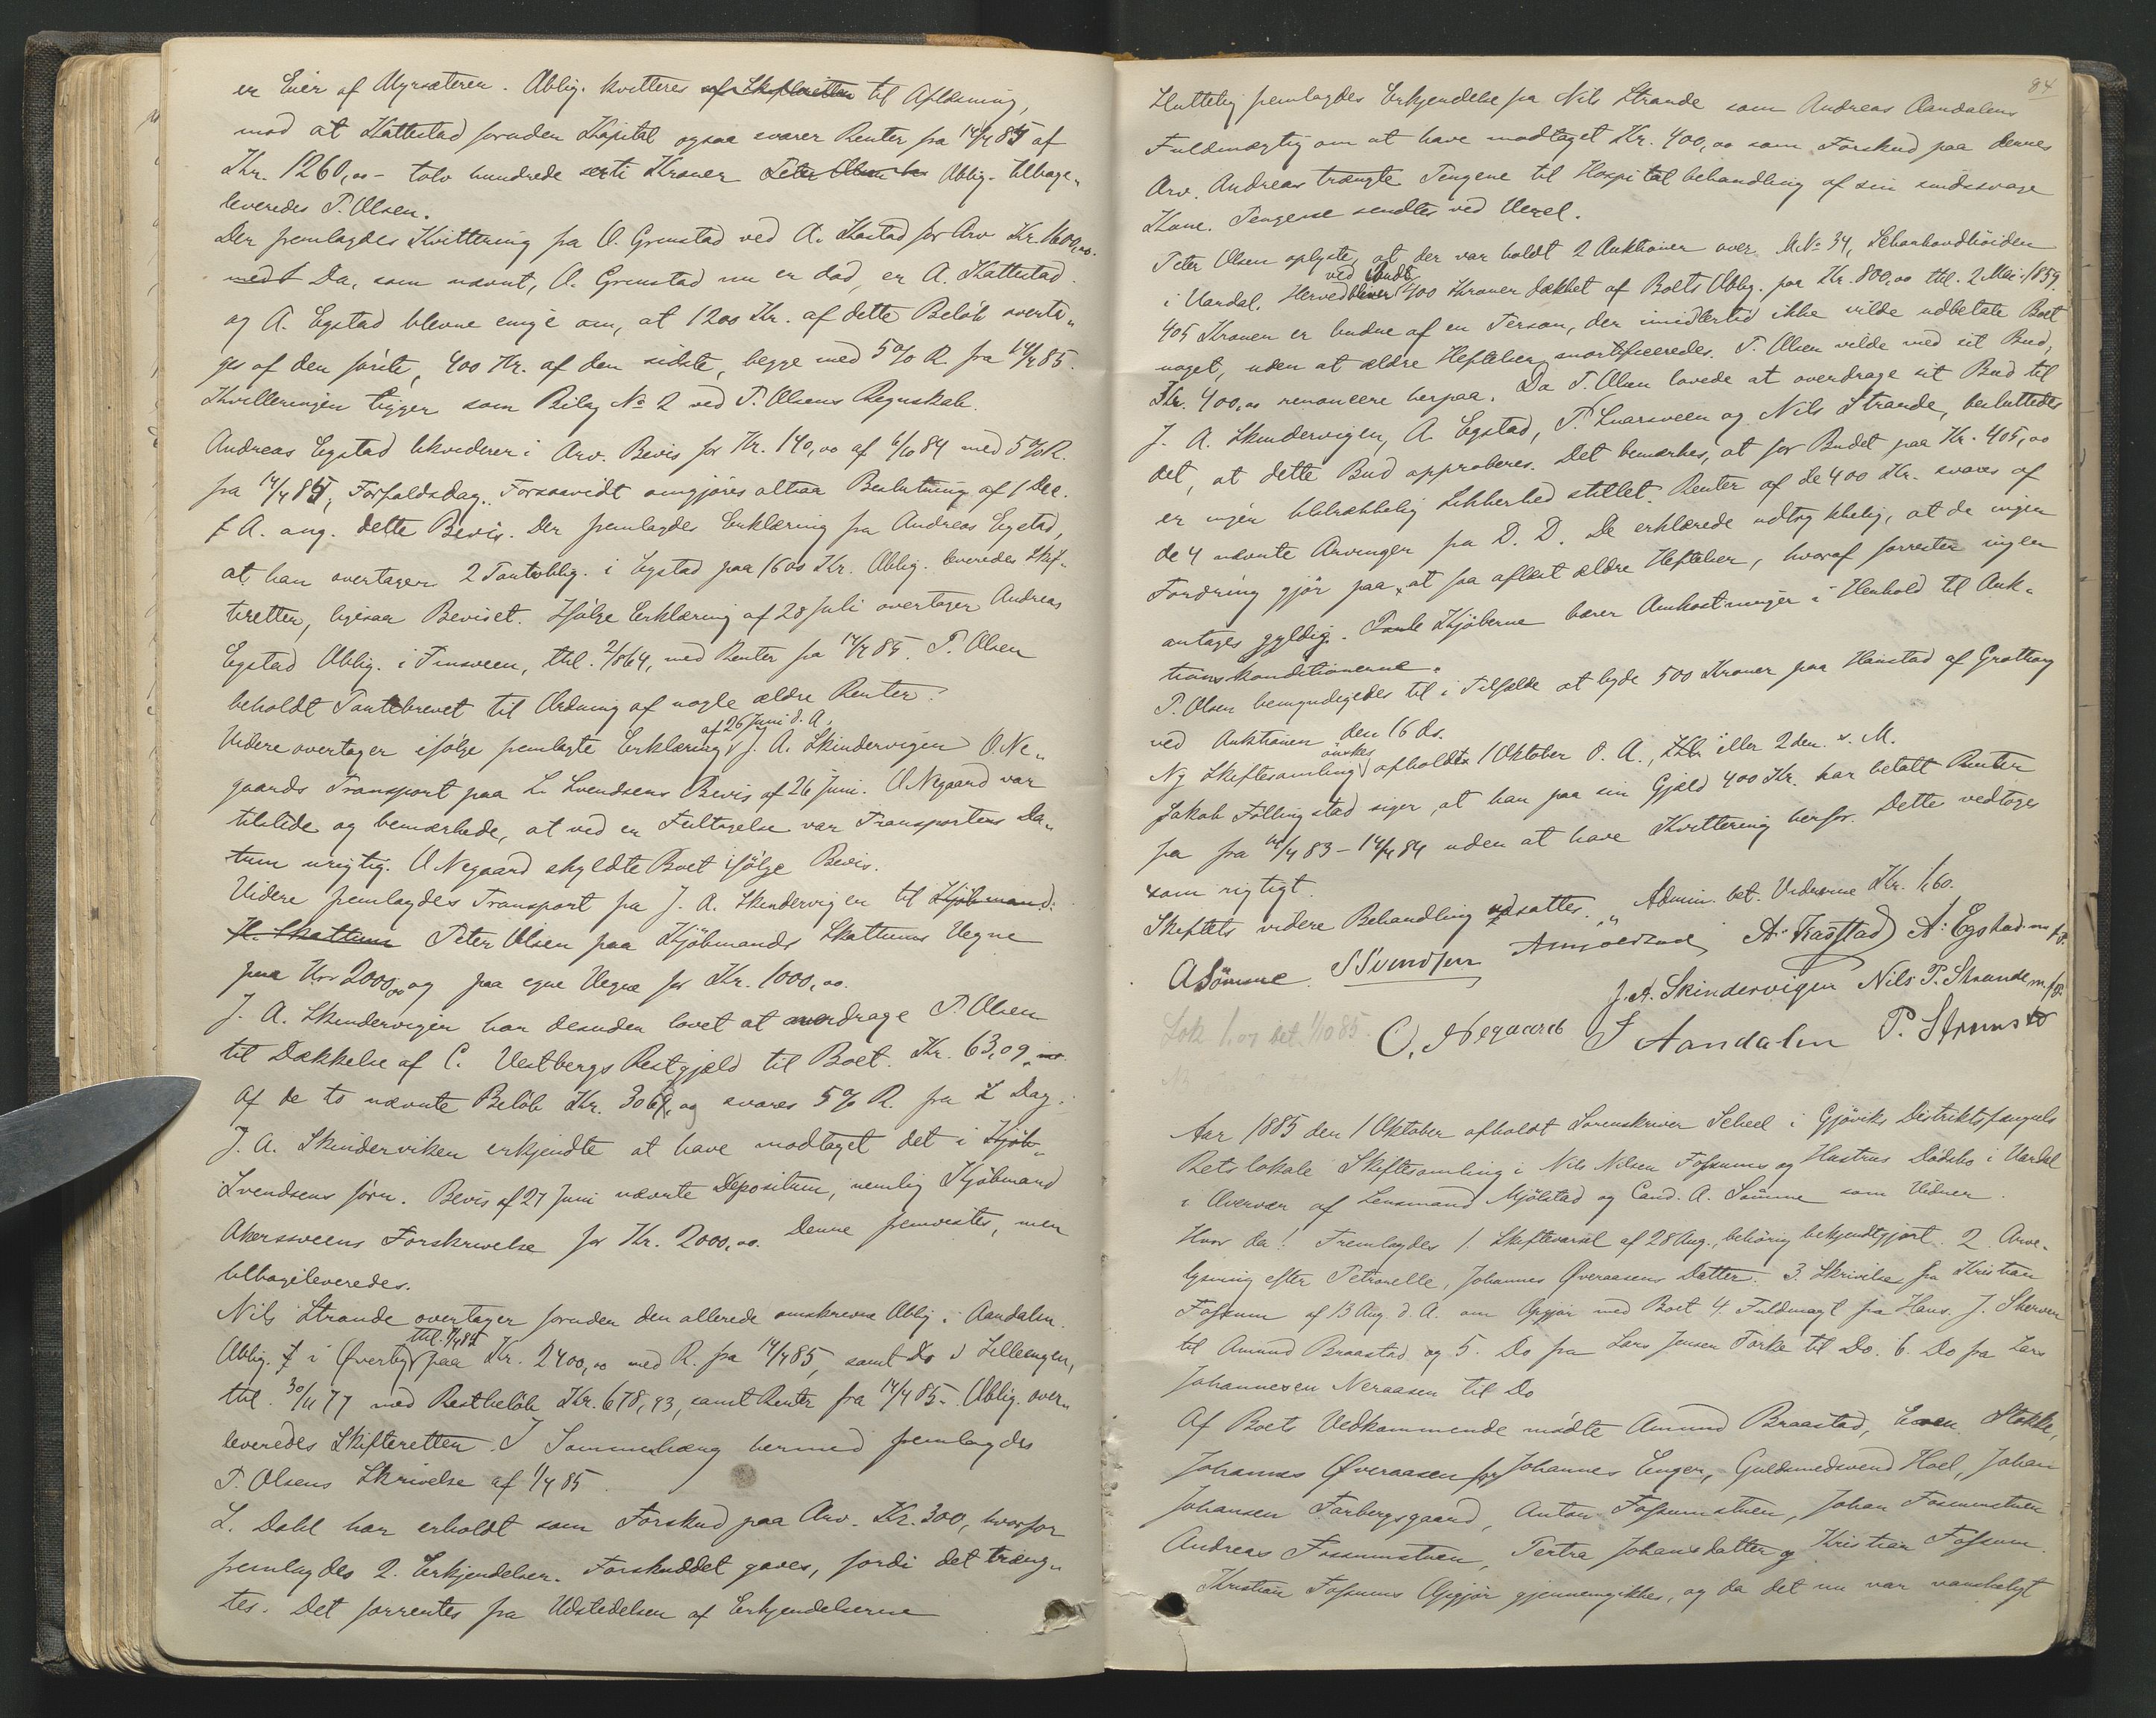 er Eier af Myrsæteren. Oblig. kvitteres af Skifteretten til Aflæsning,
mod at Kattestad foruden Kapital ogsaa svarer Renter fra 14/4 85 af
Kr. 1260,00 - tolv hundrede serti Kroner Peter Olsen Oblig. tilbage„
leveredes P. Olsen.
Der fremlagdes Kvittering fra O. Grenstad ved A. Kastad for Arv Kr. 1600,00.
med t Da, som nævnt, O. Grenstad nu er död, er A. Kattestad
og A. Egstad blevne enige om, at 1200 Kr. af dette Belöb overta„
ges af den förste, 400 Kr. af den sidste, begge med 5% R. fra 14/4 85.
Kvitteringen ligger som Bilag No 2 ved P. Olsens Regnskab.
Andreas Egstad likviderer i Arv. Bevis for Kr. 140,00 af 6/10 84 med 5% R.
fra 14/4 85, Forfaldsdag. Forsaavidt omgjöres altsaa Beslutning af 1 Dec.
f. A. ang. dette Bevis. Der fremlagdes Erklæring fra Andreas Egstad,
at han overtager 2 Panteoblig. i Egstad paa 1600 Kr. Oblig. leveredes Skif„
teretten, ligesaa Beviset. Ifölge Erklæring af 28 Juli overtager Andreas
Egstad Oblig. i Finsveen, thl. 2/8 64, med Renter fra 14/4 85. P. Olsen
beholdt Pantebrevet til Ordning af nogle ældre Renter.
af 26 Juni d. A.
Videre overtager ifölge fremlagte Erklæring J. A. Skindervigen O. Ne„
gaards Transport paa L. Svendsens Bevis af 26 Juni. O Negaard var
tilstede og bemærkede, at ved en Feiltagelse var Transportens Da„
tum urigtig. O Negaard skyldte Boet ifölge Bevis.
Videre fremlagdes Transport fra J. A. Skindervigen til Kjöbmand
H. Skattum Peter Olsen paa Kjöbmands Skattums Vegne
paa Kr 2000,00 og paa egne Vegne for Kr. 1000,00.
J. A. Skindervigen har desuden lovet at overdrage P. Olsen
til Dækkelse af C. Vestbergs Restgjæld til Boet. Kr. 63,09.
Af de to nævnte Belöb Kr. 3069, og svares 5% R. fra D. Dag.
J. A. Skinderviken erkjendte at have modtaget det i Kjöb„
Svendsens förn. Bevis af 27 Juni nævnte Depositum, nemlig Kjöbmand
Akersveens Forskrivelse for Kr. 2000,00. Denne fremvistes, men
tilbageleveredes.
Nils Strande overtager foruden den allerede omskrevne Oblig i Aandalen
Oblig. i Øverby paa Kr. 2400,00 med R. fra 14/4 85, samt Do i Lilleengen,
thl. 30/11 77 med Restbelöb Kr. 678,93, samt Renter fra 14/4 85. Oblig. over„
leveredes Skifteretten. I Sammenhæng hermed fremlagdes
P. Olsens Skrivelse af 1/4 85.
L. Dahl har erholdt som Forskud paa Arv. Kr. 300, hvorfor
fremlagdes 2. Erkjendelser. Forskuddet gaves, fordi det træng„
tes. Det forrentes fra Udstedelsen af Erkjendelserne
84
Sluttelig fremlagdes Erkjendelse fra Nils Strande som Andreas Aandalens
Fuldmægtig om at have modtaget Kr. 400,00 som Forskud paa dennes
Arv. Andreas trængte Pengene til Hospitalbehandling af sin sindssvage
Kone. Pengene sendtes ved Vexel.
Peter Olsen oplyste, at der var holdt 2 Auktioner over M. No 34, Skonhovdhöiden
i Vardal. Herved bliver 400 Kroner dækket af Boets Oblig. paa Kr. 800,00 thl. 2 Mai 1859.
405 Kroner er budne af en Person, der imidlertid ikke vilde udbetale Boet
noget, uden at ældre Heftelser mortificeredes. P. Olsen vilde med sit Bud,
Kr. 400,00 renoncere herpaa. Da P. Olsen lovede at overdrage sit Bud til
J. A. Skindervigen, A. Egstad, P. Snarsveen og Nils Strande, besluttedes
det, at dette Bud approberes. Det bemærkes, at for Budet paa Kr. 405,00
er ingen tilstrækkelig Sikkerhed stillet. Renter af de 400 Kr. svares af
de 4 nævnte Arvinger fra D. D. De erklærede udtrykkelig, at de ingen
Fordring gjör paa, at faa aflæst ældre Heftelser, hvoraf forresten ingen
antages gyldig. Kjöberne bærer Omkostninger i Henhold til Auk„
tionskonditionerne.
P. Olsen bemyndigedes til i Tilfælde at byde 500 Kroner paa Hanstad af Grothaug
ved Auktionen den 16 ds.
Ny Skiftesamling önskes afholdt 1 Oktober d. A., eller 2den s. M.
JakobFöllingstad siger, at han paa sin Gjæld 400 Kr. har betalt Renter
fra 14/4 83 - 14/4 84 uden at have Kvittering herfor. Dette vedtoges
som rigtigt.
Skiftets videre Behandling udsattes. „ Admin. bet. Vidnerne Kr. 1,60.
A Sömme S Svendsen A. Kasstad A. Egstad m. f. P.
J. A. Skindervigen Nils P. Strande m. f. P.
O. Negaard J Aandalen
Aar 1885 den 1 Oktober afholdt Sorenskriver Scheel i Gjöviks Distriktsfængsels
Retslokale Skiftesamling i Nils Nilsen Fossums og Hustrus Dödsbo i Vardal
i Overvær af Lensmand Mjölstad og Cand. A. Sömme som Vidner.
Hvor da! Fremlagdes 1. Skiftevarsel af 28 Aug., behörig bekjendtgjort. 2. Arve„
lysning efter Petronelle, Johannes Øveraasens Datter. 3. Skrivelse fra Kristian
Fossum af 13 Aug d. A. om Opgjör med Boet 4. Fuldmagt fra Hans J. Skerven
til Amund Braastad og 5. Do fra Lars Jensen Forke til Do. 6. Do fra Lars
Johannesen Neraasen til Do
Af Boets Vedkommende mödte Amund Braastad, Even Stokke,
Johannes Øveraasen for Johannes Enger, Guldsmedsvend Hoel, Johan
Johansen Farbergsgaard, Anton Fossumstuen, Johan Fossumstuen
Andreas Fossumstuen, Pertra Johansdatter og Kristian Fossum.
Kristian Fossums Opgjör gjennemgikkes, og da det nu var vanskeligt